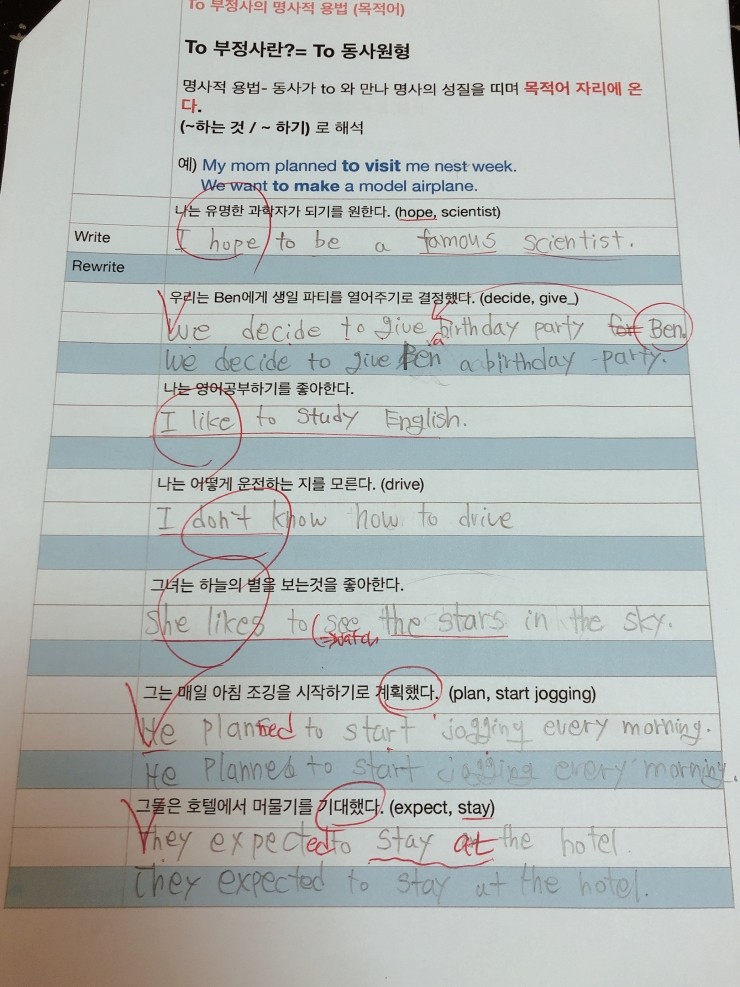 To 부정사의 명사적 용법 (목적어)
To 부정사란?= To 동사원형
명사적 용법- 동사가 to 와 만나 명사의 성질을 띠며 목적어 자리에 온
다.
(~하는 것 / ~ 하기) 로 해석
예) My mom planned to visit me nest week.
We want to make a model airplane.
나는 유명한 과학자가 되기를 원한다. (hope, scientist)
Write I hope to be a famous scientist.
Rewrite
우리는 Ben에게 생일 파티를 열어주기로 결정했다. (decide, give_)
We decide to give birthday party for Ben.
a
We decide to give Ben a birthday party.
나는 영어공부하기를 좋아한다.
I like to study English.
나는 어떻게 운전하는 지를 모른다. (drive)
I don't know how to drive
그녀는 하늘의 별을 보는것을 좋아한다.
She likes to see the stars in the sky.
=watch
그는 매일 아침 조깅을 시작하기로 계획했다. (plan, start jogging)
He planned to start jogging every morning.
He Planned to start jogging every morning.
그들은 호텔에서 머물기를 기대했다. (expect, stay)
They expected to stay at the hotel.
They expected to stay at the hotel.